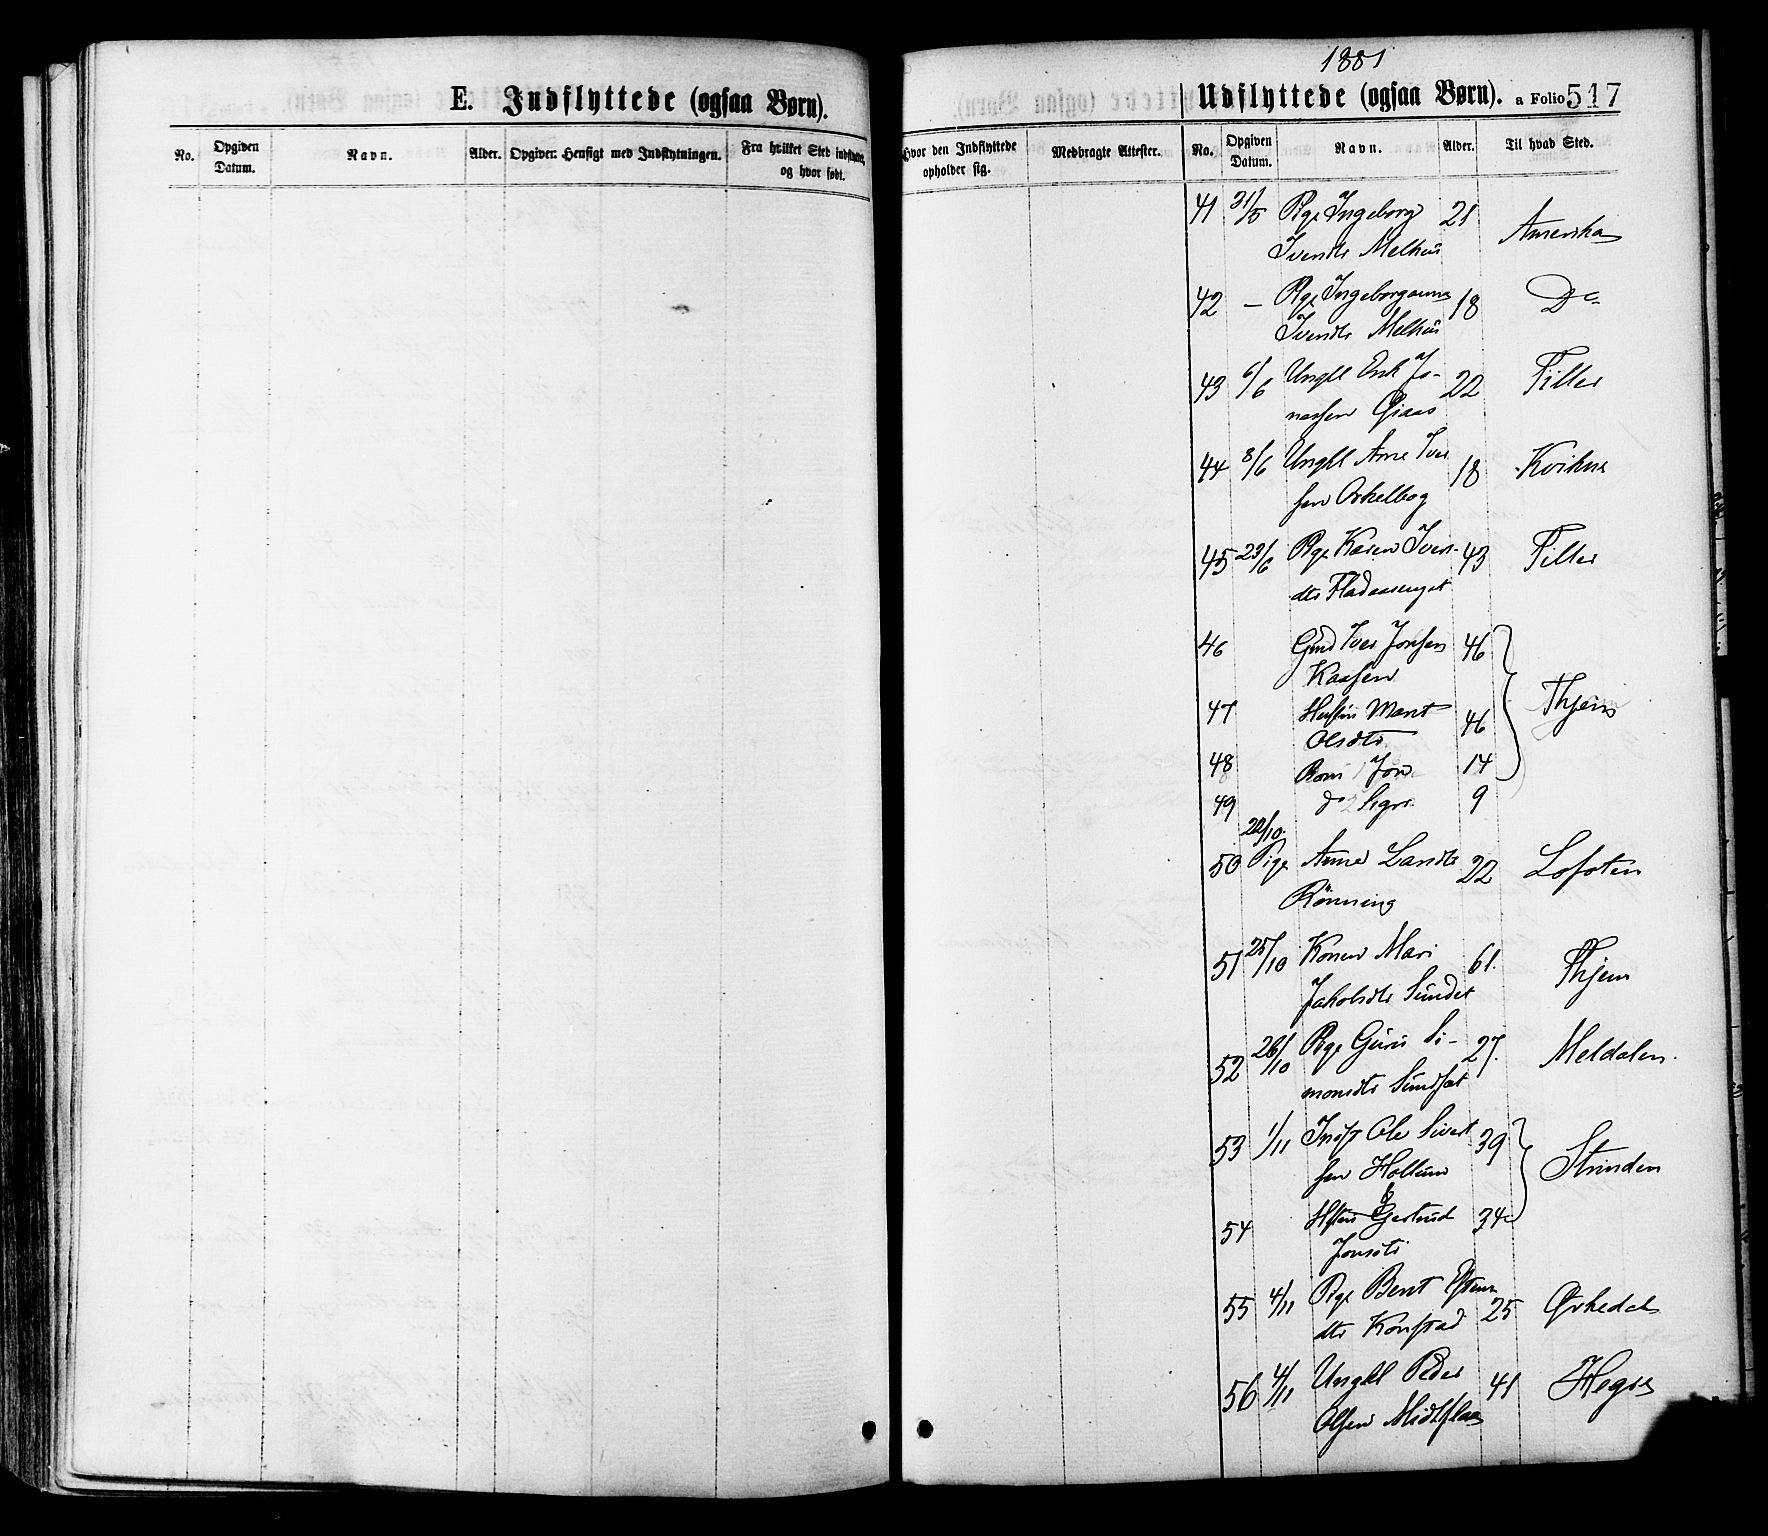 E. Indflyttede (ogsaa Børn).
No.
Opgiven Datum.
Navn.
Alder.
Opgiven Hensigt med Indflytningen.
Fra hvilket Sted indflyttet, og hvor født.
1881
Udflyttede (ogsaa Børn). a Folio 517
Hvor den Indflyttede opholder sig.
Medbragte Attester.
No.
Opgiven Datum.
Navn.
Alder.
Til hvad Sted.
41 31/5 Pige Ingeborg 21 Amerika
Ivendtr Melhus
42 — Pige Ingeborganna 18 Do
Ivendtr Melhus
43 6/6 Ungkl Erik Jo- 22 Tiller
nassen Gjaas
44 8/6 Ungkl Arne Iver 18 Kvikne
sen Orkelbog
45 23/6 Pige Karen Iven- 43 Tiller
dtr Fladaasenget
46 Gmd Iver Jonsen 46
Kaasen
Thjem
47 Hustru Marit 46
Olsdtr
48 Barn 1 Jon 14
49 do 2 Sigri 9
22/10
50 Pige Anne Larsdtr 22 Lofoten
Rönning
51 25/10 Konen Mari 61. Thjem
Jakobsdtr Sundet
52 26/10 Pige Guru Si- 27. Meldalen.
monsdtr Sundset
53 1/11 Indst Ole Sivert 39 Strinden
sen Hollum
54 Hstru Gertrud 34
Jonsdtr
55 4/11 Pige Berit Esten 25 Orkedal
dtr Konstad
56 4/11 Ungkl Peder 41 Hegre
Olsen Midtflaa